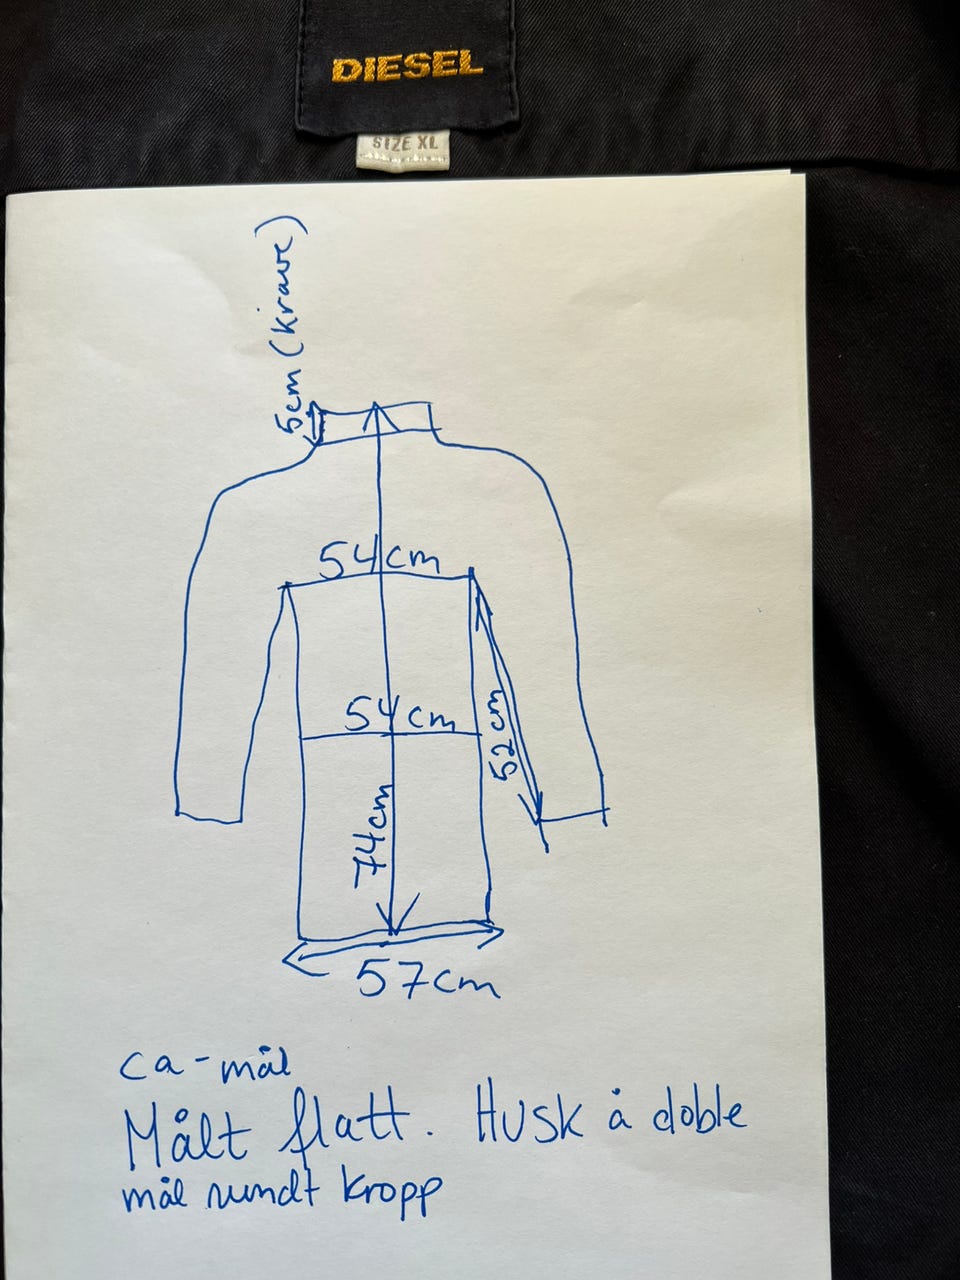 DIESEL
SIZE XL
5cm (krave)
54cm
54cm
52cm
74cm
57cm
ca-mål
Målt flatt. Husk å doble
mål rundt kropp